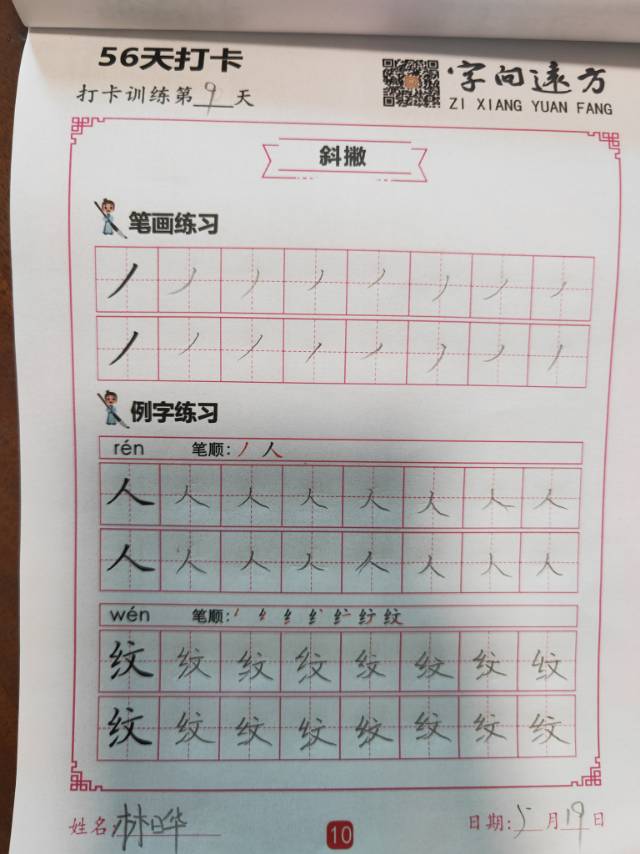 56天打卡
打卡训练第9天
字向远方
ZI XIANG YUAN FANG
斜撇
笔画练习
丿丿丿丿丿丿丿丿
丿丿丿丿丿丿丿丿
例字练习
rén 笔顺:丿人
人人人人人人人人
人人人人人人人人
wén 笔顺:
纹纹纹纹纹纹纹纹
纹纹纹纹纹纹纹纹
姓名:林晔
10
日期:5月19日